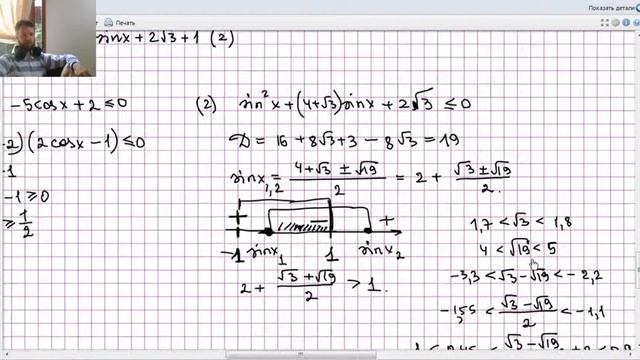 Показать детали
Печать
sinx + 2√3 + 1 (2)
-5cosx + 2 ≤ 0
-2)(2cosx - 1) ≤ 0
-1
-1 ≥ 0
≥ 1/2
(2) sin²x + (4+√3)sinx + 2√3 ≤ 0
D = 16 + 8√3 + 3 - 8√3 = 19
sinx₁,₂ = (4+√3 ± √19)/2 = 2 + (√3 ± √19)/2.
+ - +
-1 sinx₁ 1 sinx₂
2 + (√3 + √19)/2 > 1.
1,7 < √3 < 1,8
4 < √19 < 5
-3,3 < √3 - √19 < -2,2
-1,55 < (√3 - √19)/2 < -1,1